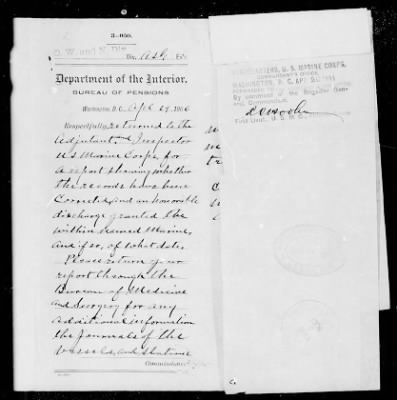 3-050.
O. W. and N. Div.
Department of the Interior,
BUREAU OF PENSIONS
Washington, D. C., Apl 27, 1906
Respectfully returned to the
Adjutant and Inspector
U.S. Marine Corps, for
a report showing whether
the records have been
Corrected, and an honorable
discharge granted the
within named Marine,
and if so, of what date.
Please return your
report through the
Bureau of Medicine
and Surgery for any
additional information
the Journals of the
vessels, and stations
Commissioner
HEADQUARTERS, U. S. MARINE CORPS,
COMMANDANT'S OFFICE,
WASHINGTON, D. C.
By command of the Brigadier Gen-
eral, Commandant.
C.